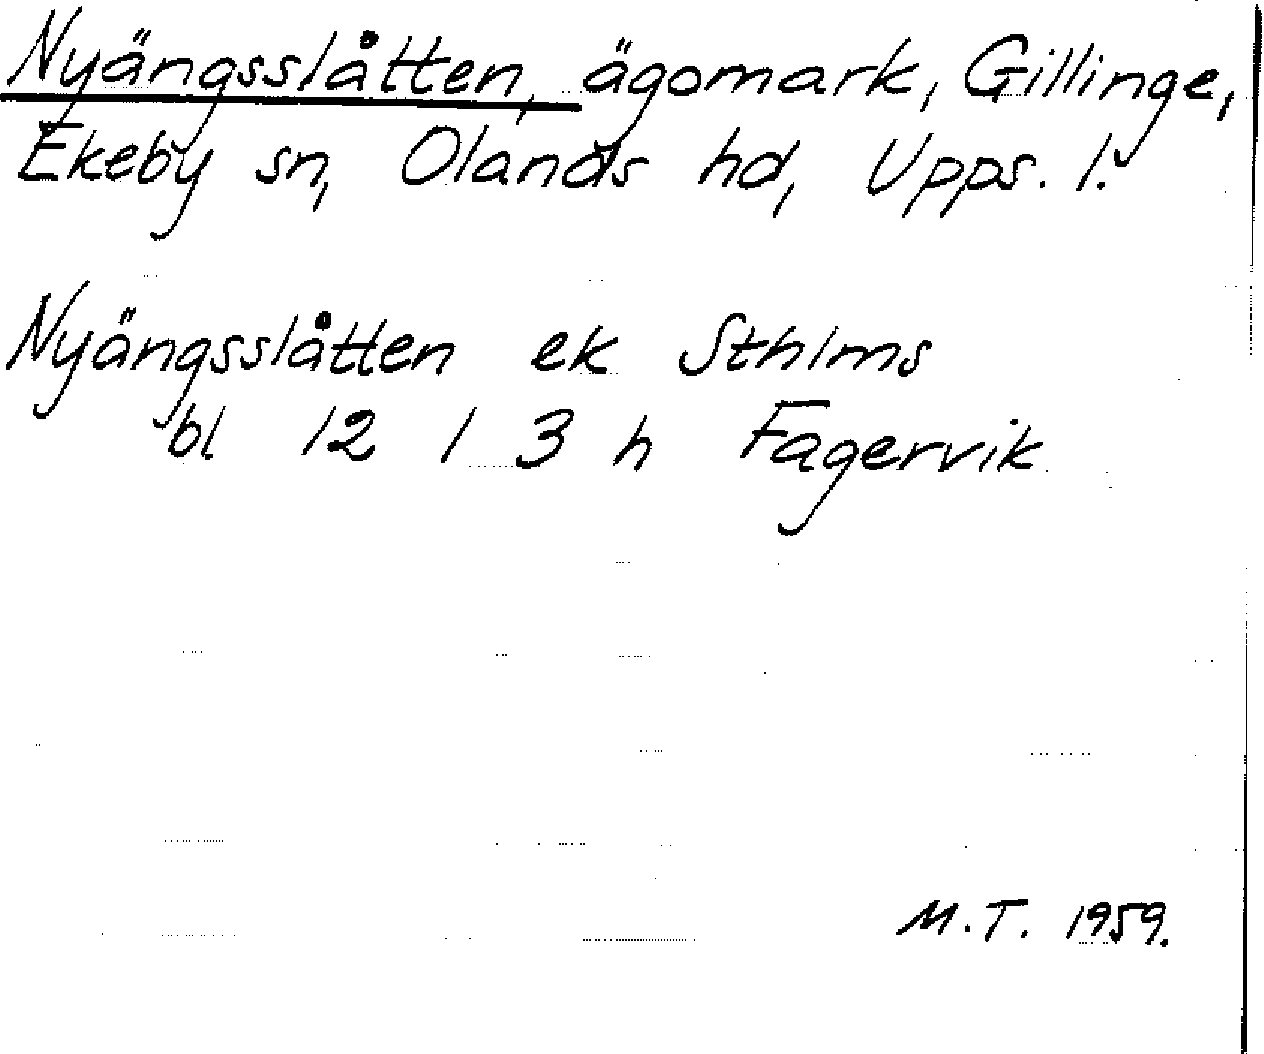 Nyängsslåtten, ägomark, Gillinge,
Ekeby sn, Olands hd, Upps. l.
Nyängsslåtten ek Sthlms
bl 12 I 3 h Fagervik
M.T. 1959.